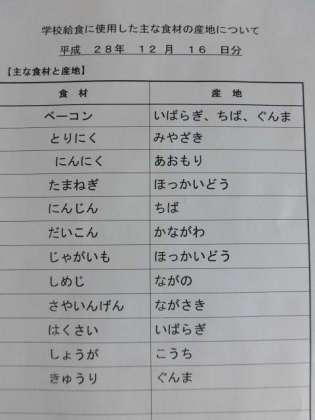 学校給食に使用した主な食材の産地について
平成 ２８年 １２ 月 １６ 日分
【主な食材と産地】
食 材 産 地
ベーコン いばらぎ、ちば、ぐんま
とりにく みやざき
にんにく あおもり
たまねぎ ほっかいどう
にんじん ちば
だいこん かながわ
じゃがいも ほっかいどう
しめじ ながの
さやいんげん ながさき
はくさい いばらぎ
しょうが こうち
きゅうり ぐんま